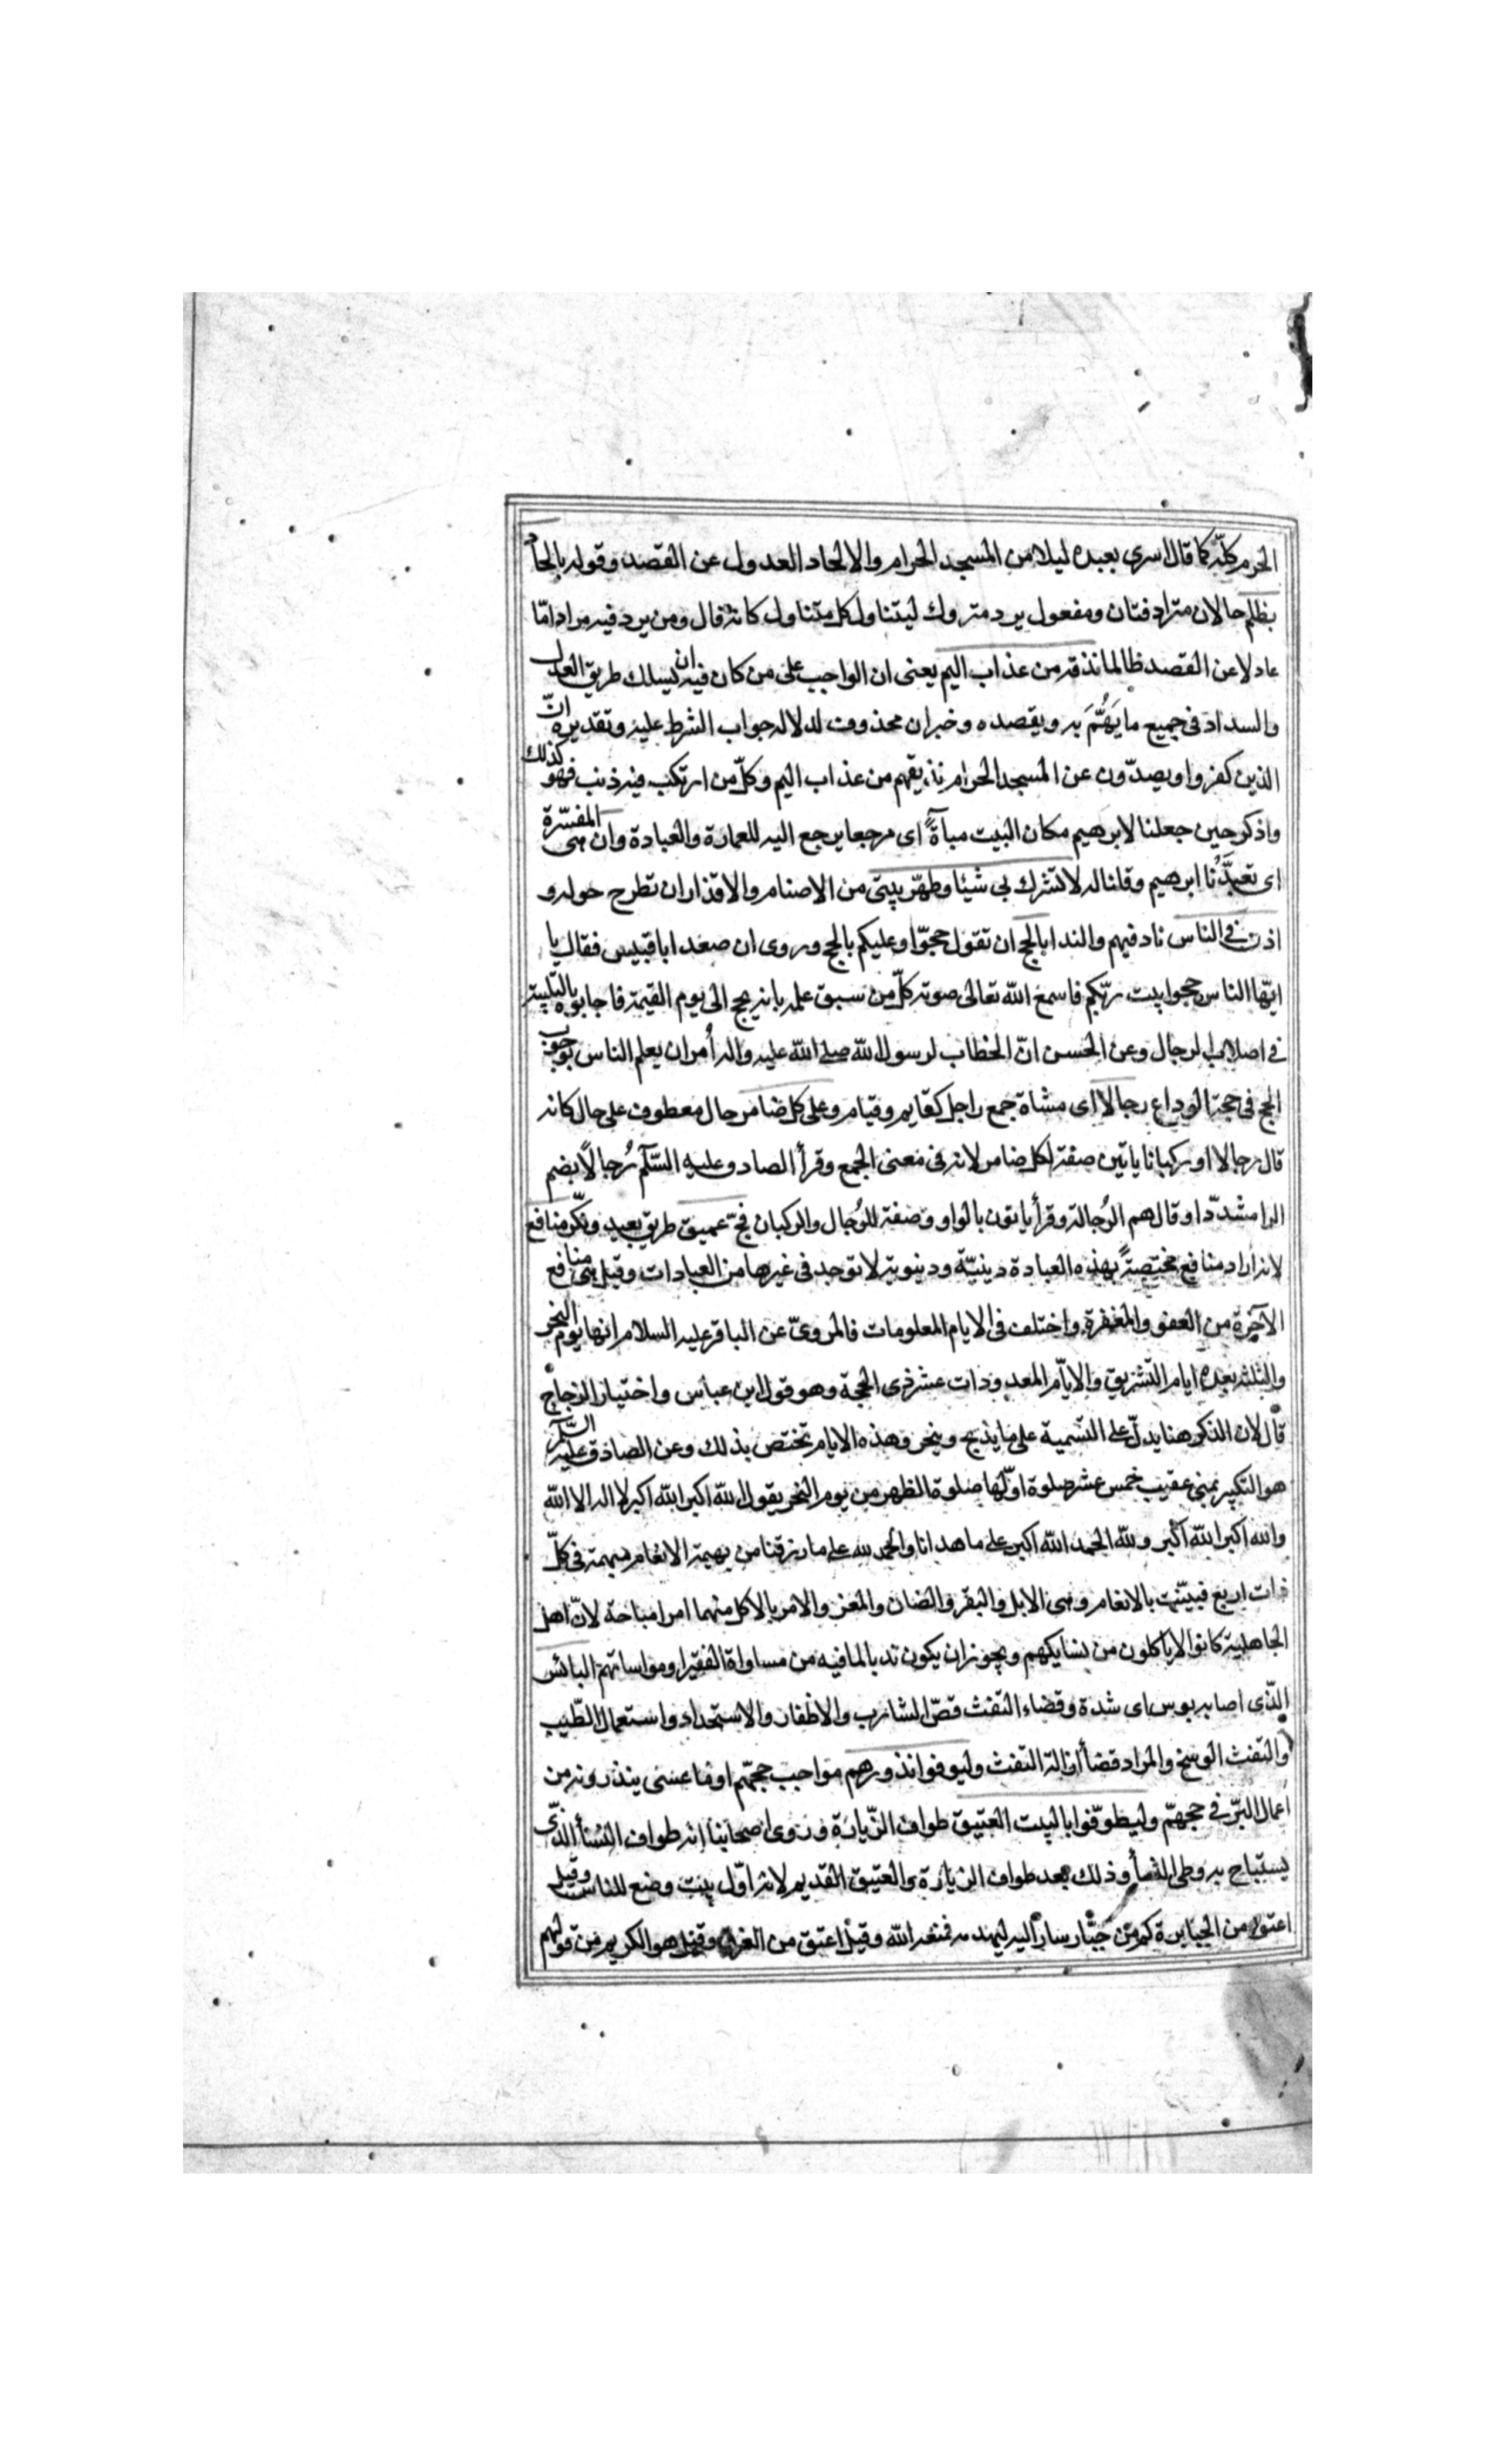 الحرم كلّه كما قال اسرى بعبده ليلا من المسجد الحرام والالحاد العدول عن القصد وقوله بالحاد
بظلم حالان مترادفتان ومفعول يرد متروك ليتناول كل متناول كانه قال ومن يرد فيه مرادا مّا
عادلا عن القصد ظالما نذقه من عذاب اليم يعنى ان الواجب على من كان فيه ان يسلك طريق العدل
والسداد فى جميع ما يَهُمَّ به ويقصده وخبر ان محذوف لدلالة جواب الشرط عليه وتقديره انّ
الذين كفروا ويصدّون عن المسجد الحرام نذيقهم من عذاب اليم وكلّ من ارتكب فيه ذنب فهو كذلك
واذكر حين جعلنا لابرهيم مكان البيت مباةً اى مرجعا يرجع اليه للعمارة والعبادة وان هى المفسّرة
اى تعبدَّنا ابرهيم وقلنا له لا تشرك بى شيئا وطهّر بيتى من الاصنام والاقذار ان تطرح حوله و
اذن فى الناس ناد فيهم والندا بالحج ان تقول حجّوا وعليكم بالحج وروى ان صعد ابا قبيس فقال يا
ايّها الناس حجوا بيت ربّكم فاسمع الله تعالى صوته كلّ من سبق علمه بانه يحج الى يوم القيمة فاجابوه بالتلبية
فى اصلاب الرجال وعن الحسن انّ الخطاب لرسول الله صلى الله عليه واله اُمر ان يعلم الناس بوجوب
الحج فى حجة الوداع رجالا اى مشاة جمع راجل كقايم وقيام وعلى كل ضامر حال معطوف على حال كانه
قال رجالا او ركبانا ياتين صفة لكل ضامر لانه فى معنى الجمع وقرأ الصادق عليه السّلم رُجالًا بضم
الرا مشدّدا وقال هم الرُجالة وقرأ ياتون بالواو وصفة للرُجال والركبان فجّ عميق طريق بعيد ونكّر منافع
لانه اراد منافع مختصةً بهذه العبادة دينيّة ودينوية لا توجد فى غيرها من العبادات وقيل هى منافع
الآخرة من العفو والمغفرة واختلف فى الايام المعلومات فالمروىّ عن الباقر عليه السلام انها يوم النحر
والثلثه بعده ايام التشريق والايّام المعدودات عشر ذى الحجة وهو قول ابن عباس واختيار الزجاج
قال لان الذكر هنا يدلّ على التسمية على ما يذبح وينحر وهذه الايام تختص بذلك وعن الصادق عليه السّلم
هو التكبير بمنى عقيب خمس عشر صلوة اوّلها صلوة الظهر من يوم النحر يقول الله اكبر الله اكبر لا اله الا الله
والله اكبر الله اكبر ولله الحمد الله اكبر على ما هدانا والحمد لله على ما رزقنا من بهيمة الانعام مبهمة فى كلّ
ذات اربع فبيّنت بالانعام وهى الابل والبقر والضان والمعز والامر بالاكل منهما امر اباحة لانّ اهل
الجاهلية كانوا لا ياكلون من نسايكهم ويجوز ان يكون ندبا لما فيه من مساواة الفقرا ومواساتهم البائس
الذّى اصابه بوس اى شدة وقضاء التفث قصّ الشارب والاظفار والاستحداد واستعمال الطّيب
والتفث الوسخ والمراد قضأ ازالة التفث وليوفوا نذورهم مواجب حجّهم او ما عسى ينذرونه من
اعمال البرّ فى حجهّم وليطوّفوا بالبيت العتيق طواف الزّيارة وروى اصحابنا انه طواف النسأ الذى
يستباح به وطى النسأ وذلك بعد طواف الزيارة والعتيق القديم لانه اوّل بيت وضع للناس وقيل
اعتق من الجبابرة كم من جبّار سار اليه ليهدمه فمنعه الله وقيل اعتق من الغرق وقيل هو الكريم من قولهم